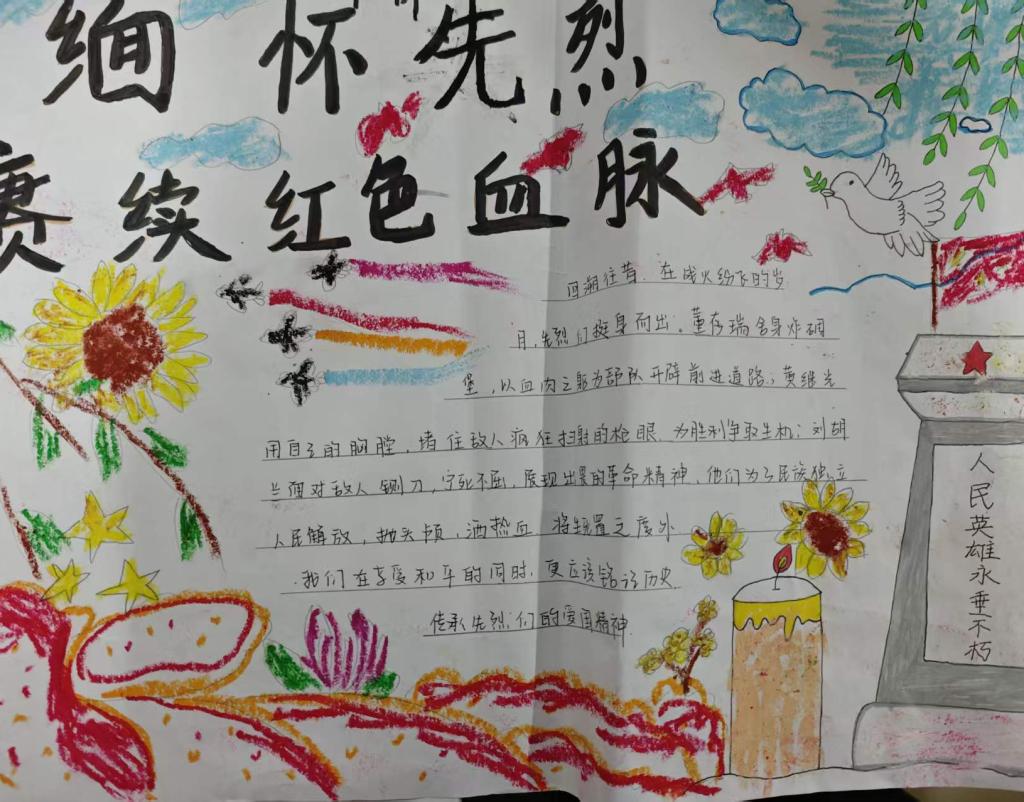 缅怀先烈
赓续红色血脉
回溯往昔，在战火纷飞的岁
月，先烈们挺身而出。董存瑞舍身炸碉
堡，以血肉之躯为部队开辟前进道路；黄继光
用自己的胸膛，堵住敌人疯狂扫射的枪眼，为胜利争取生机；刘胡
兰面对敌人铡刀，宁死不屈，展现出的革命精神，他们为了民族独立
人民解放，抛头颅，洒热血，将生置之度外
我们在享受和平的同时，更应该铭记历史
传承先烈们的爱国精神
人民英雄永垂不朽